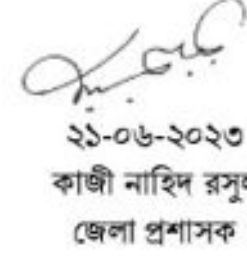 ২১-০৬-২০২৩
কাজী নাহিদ
জেলা প্রশাসক